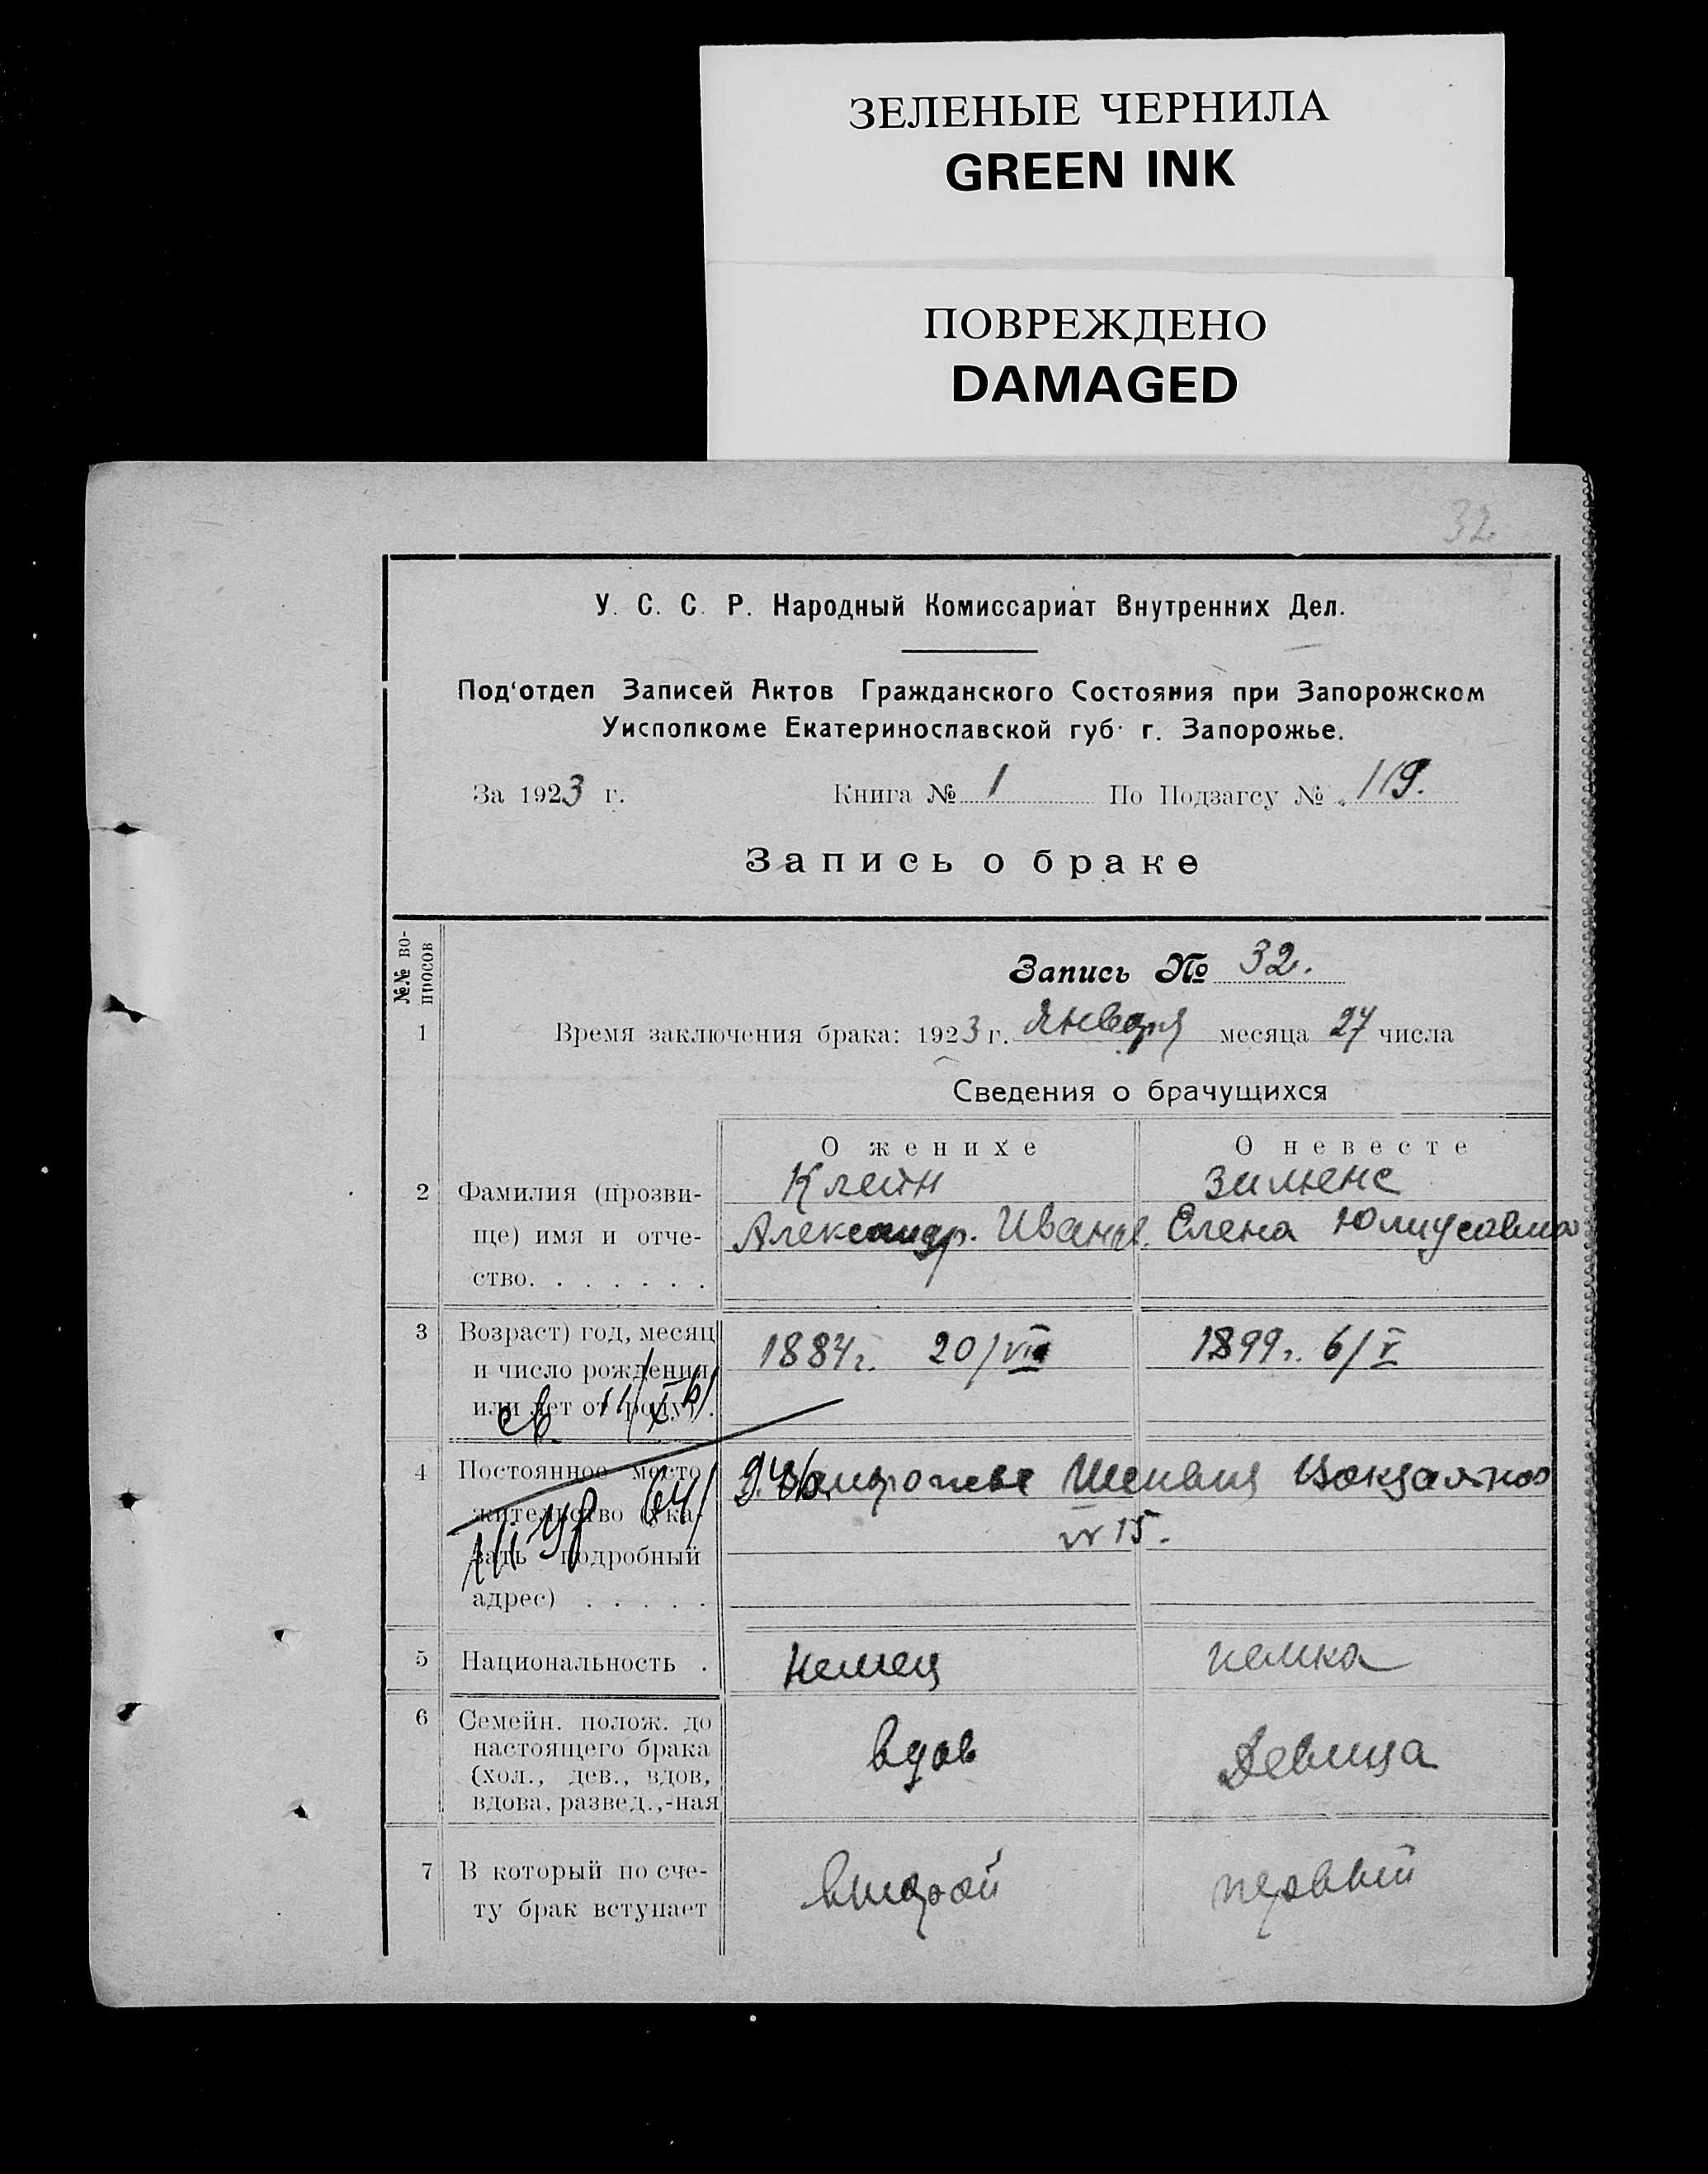 ЗЕЛЕНЫЕ ЧЕРНИЛА
GREEN INK
ПОВРЕЖДЕНО
DAMAGED
32
У. С. С. Р. Народный Комиссариат Внутренних Дел.
Под'отдел Записей Актов Гражданского Состояния при Запорожском
Уисполкоме Екатеринославской губ. г. Запорожье.
За 1923 г. Книга № 1 По Подзагсу № 119.
Запись о браке
№№ во-
просов
Запись № 32.
1 Время заключения брака: 1923 г. Января месяца 27 числа
Сведения о брачущихся
О женихе О невесте
2 Фамилия (прозви- Клейн Зименс
ще) имя и отче- Александр. Иванов. Елена Юлиусовна
ство. . . . . . .
3 Возраст) год, месяц 1884 г. 20/VIII 1899 г. 6/V
и число рождения
или лет от роду) .
св. 11/X
4 Постоянное место
жительство (ука-
№ 15.
зать подробный
адрес) . . . . .
5 Национальность . Немец немка
6 Семейн. полож. до
настоящего брака вдов Девица
(хол., дев., вдов,
вдова, развед.,-ная
7 В который по сче- второй первый
ту брак вступает